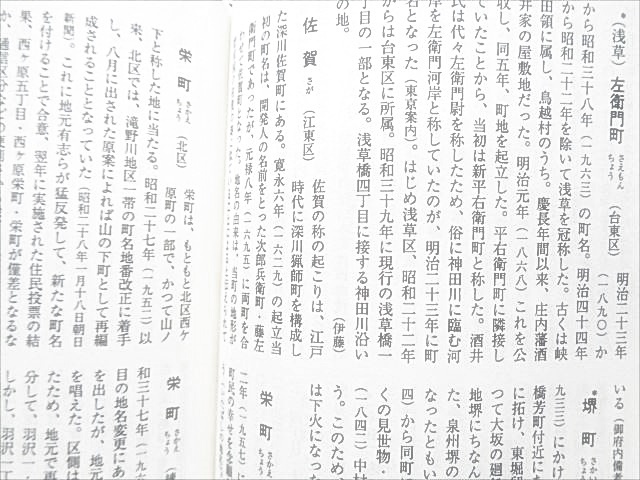 (浅草)左衛門町 さえもんちょう (台東区)
明治二十三年
(一八九〇)か
から昭和三十八年(一九六三)の町名。明治四十四年
から昭和二十二年を除いて浅草を冠称した。古くは峡
田領に属し、鳥越村のうち。慶長年間以来、庄内藩酒
井家の屋敷地だった。明治元年(一八六八)これを公
収し、同五年、町地を起立した。平右衛門町に隣接し
ていたことから、当初は新平右衛門町と称した。酒井
氏は代々左衛門尉を称したため、俗に神田川に臨む河
岸を左衛門河岸と称していたのが、明治二十三年に町
名となった(東京案内)。はじめ浅草区、昭和二十二年
からは台東区に所属。昭和三十九年に現行の浅草橋一
丁目の一部となる。浅草橋四丁目に接する神田川沿い
の地。
(伊藤)
佐賀 さが (江東区)
佐賀の称の起こりは、江戸
時代に深川猟師町を構成し
た深川佐賀町にある。寛永六年(一六二九)の起立当
初の町名は、開発人の名前をとった次郎兵衛町・藤左
衛門町であったが、元禄八年(一六九五)に両町を合
栄町 さかえちょう (北区)
栄町は、もともと北区西ヶ
原町の一部で、かつて山ノ
下と称した地に当たる。昭和二十七年(一九五二)以
来、北区では、滝野川地区一帯の町名地番改正に着手
し、八月に出された原案によれば山の下町として再編
成されることとなっていた(昭和二十八年一月十八日朝日
新聞)。これに地元有志らが猛反発して、新たな町名
を付けることで合意、翌年に実施された住民投票の結
果、西ヶ原五丁目・西ヶ原栄町・栄町が僅差となるな
いる(御府内備考
堺町 さかいちょう
九三三)にかけ
橋芳町付近にあ
に拓け、東堀留
つて大坂の廻
地堺にちなん
た、泉州堺の
なったともい
四)から同町に
くの見世物・
(一八四二)中村
う。このため、
は下火になった
栄町 さかえちょう
二年(一九五七)に
町民の幸せを念願
栄町 さかえちょう
和三十七年(一九六
目の地名変更にあ
を出したが、地元
を唱えた。区側は
ため、地元で再
分して、羽沢一
しかし、羽沢一丁